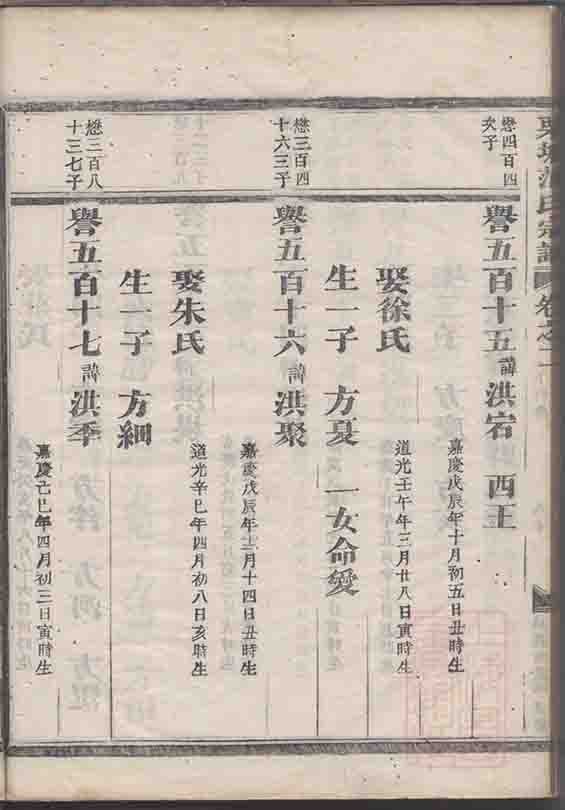 氏宗譜 卷之二
懋四百四
次子
譽五百十五諱洪宕 西王
嘉慶戊辰年十月初五日丑時生
娶徐氏
道光壬午年三月廿八日寅時生
生一子 方夏 一女命愛
懋三百四
十六三子
譽五百十六諱洪聚
嘉慶戊辰年十二月十四日丑時生
娶朱氏
道光辛巳年四月初八日亥時生
生一子 方細
懋三百八
十三七子
譽五百十七諱洪季
嘉慶己巳年四月初三日寅時生